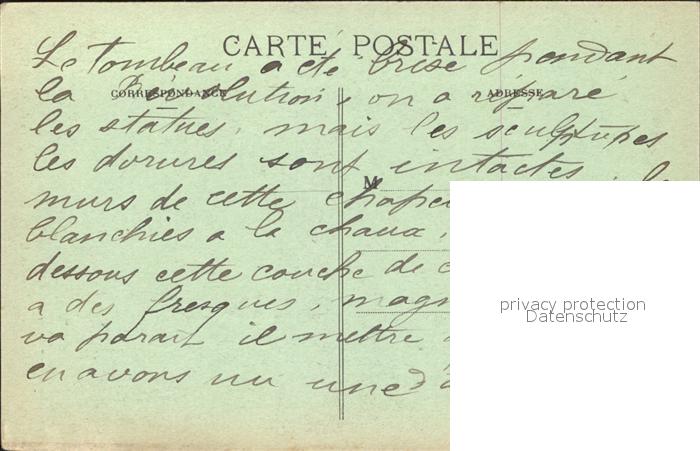 CARTE POSTALE
Le tombeau a été brisé pendant
CORRESPONDANCE
ADRESSE
la Révolution, on a réparé
les statues, mais les sculptures
les dorures sont intactes. les
M
murs de cette chapel
blanchies a la chaux,
dessous cette couche de c
a des fresques, magn
va parait il mettre
en avons vu une d'
privacy protection
Datenschutz